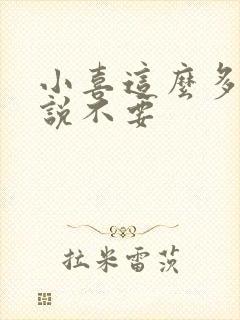 小喜這麼多
說不要
拉米雷茨